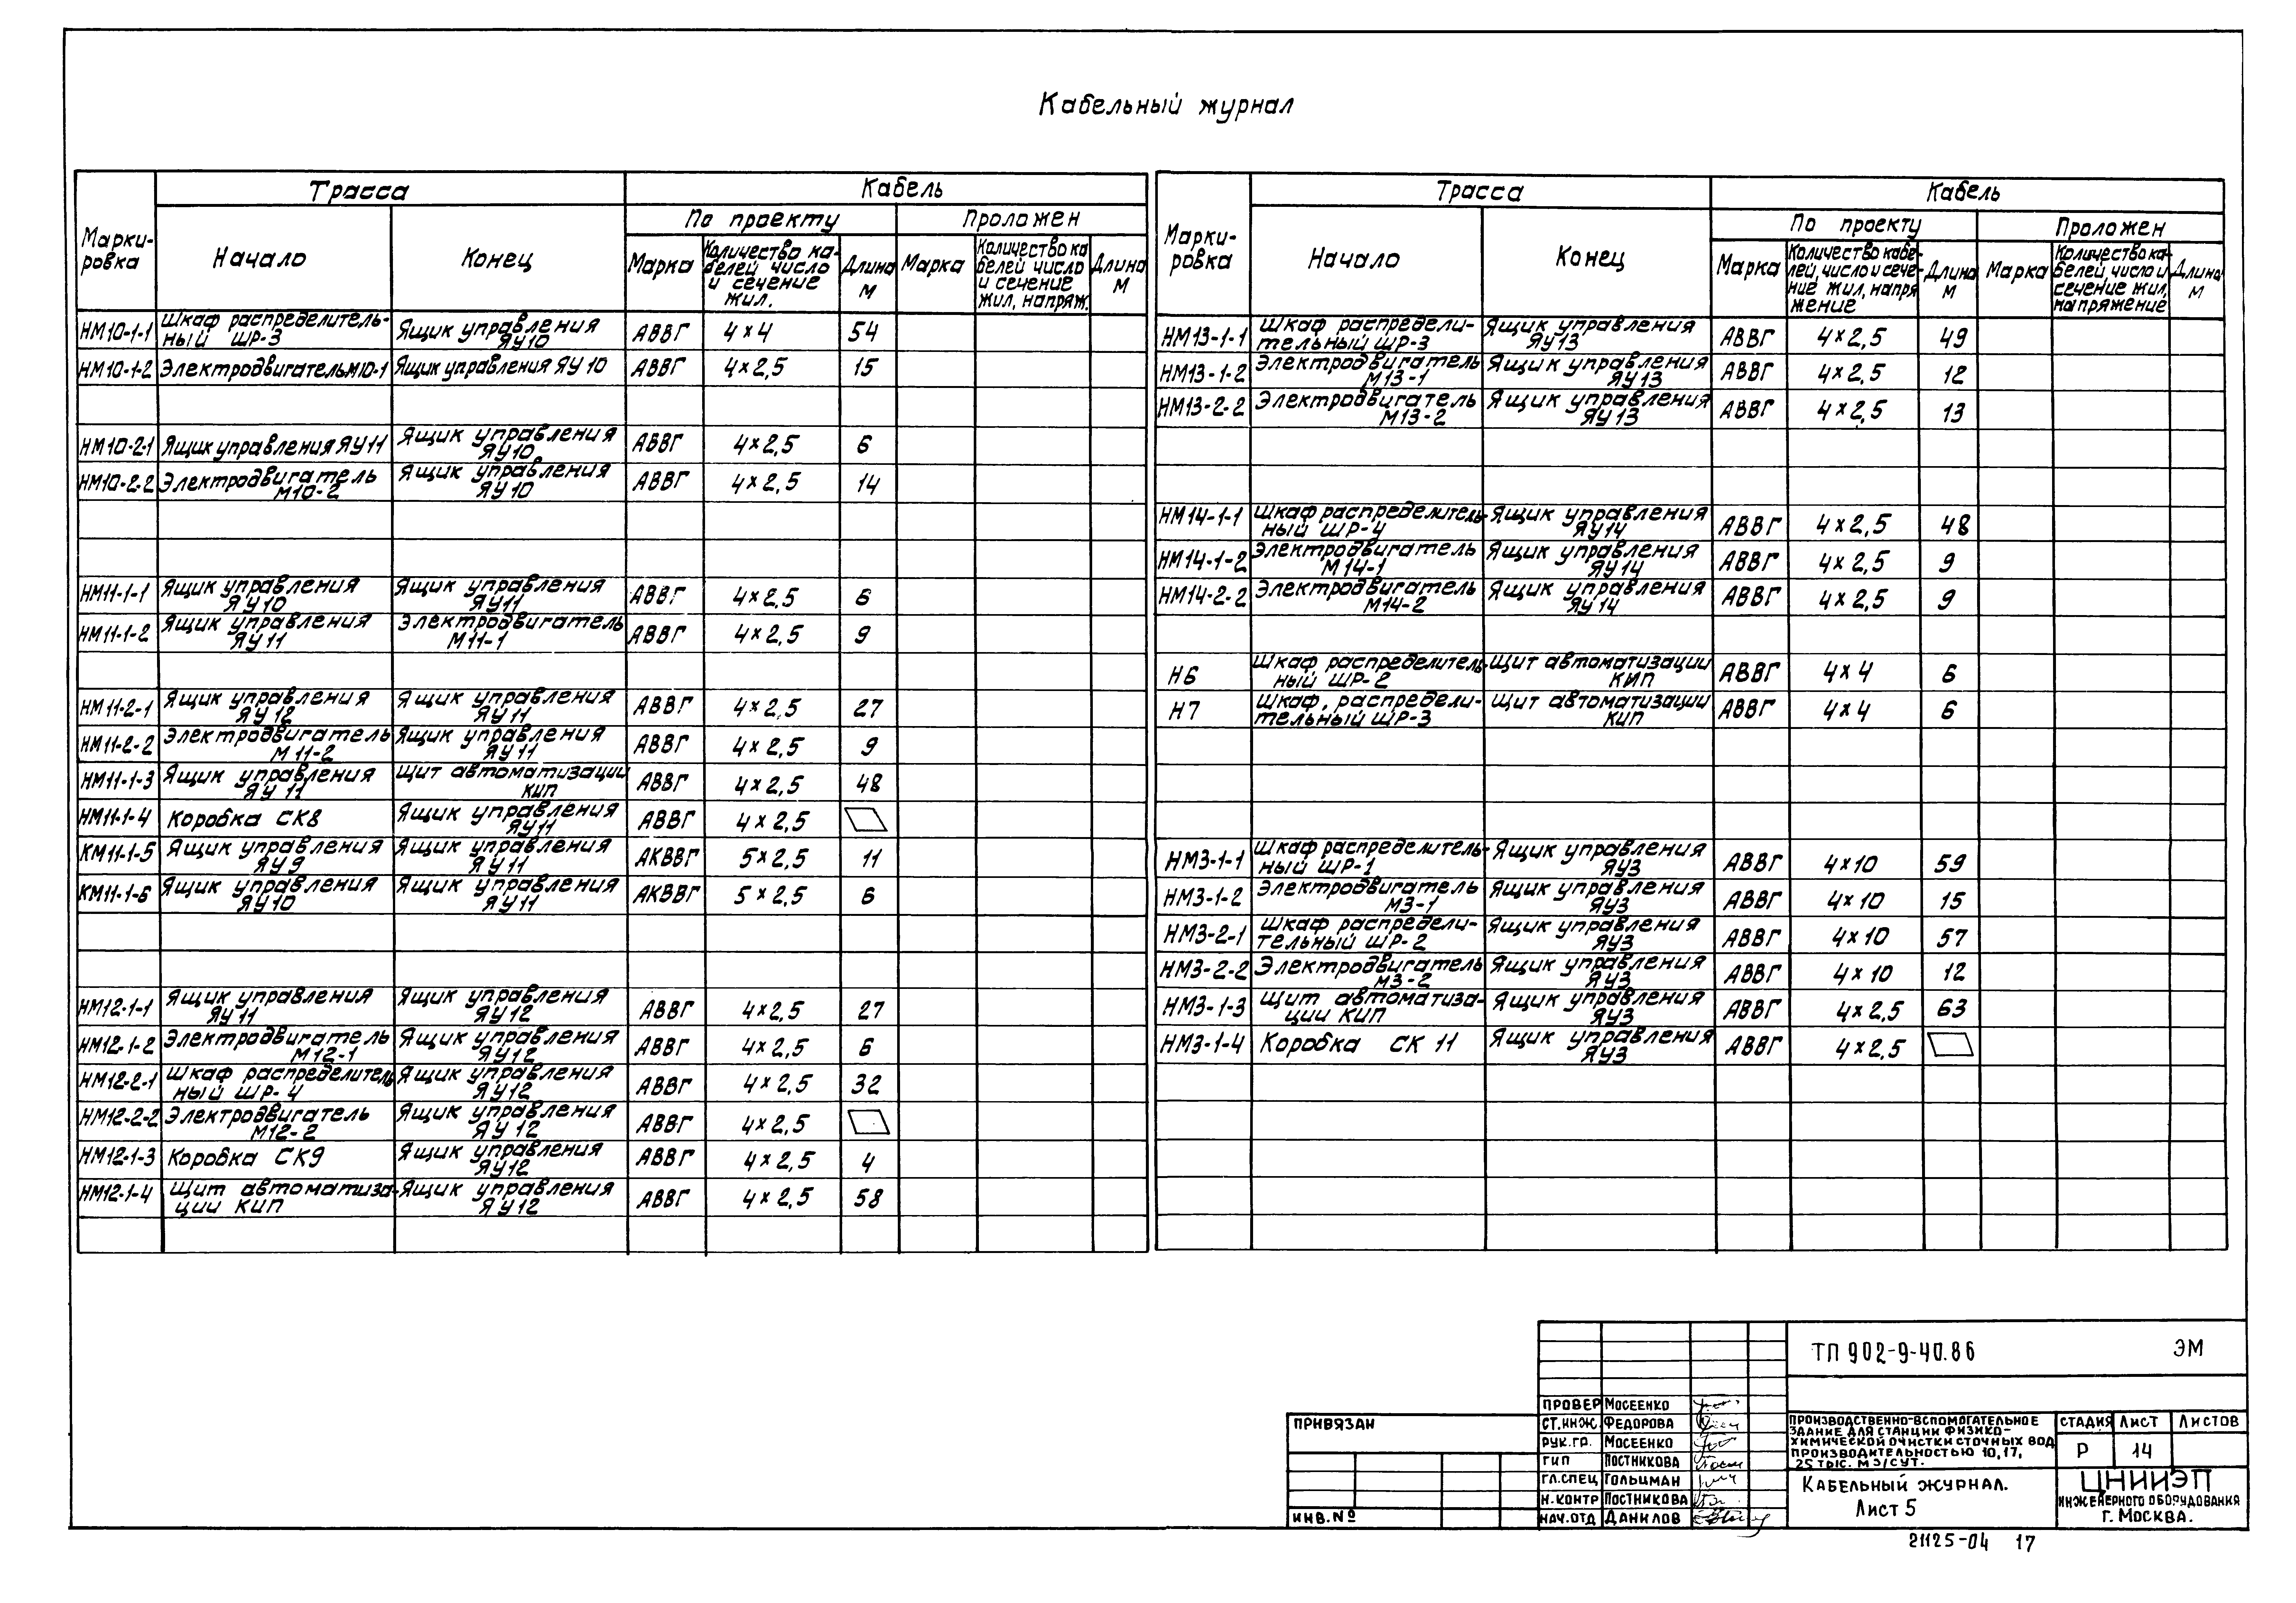 Кабельный журнал
Марки-
ровка
Трасса
Кабель
Начало
Конец
По проекту
Проложен
Марка
Количество ка-
белей, число
и сечение
жил.
Длина
М
Марка
Количество ка
белей число
и сечение
жил, напряж.
Длина
М
НМ10-1-1 Шкаф распределитель- Ящик управления АВВГ 4×4 54
ный ШР-3 ЯУ10
НМ10-1-2 Электродвигатель М10-1 Ящик управления ЯУ10 АВВГ 4×2,5 15
НМ10-2-1 Ящик управления ЯУ11 Ящик управления АВВГ 4×2,5 6
ЯУ10
НМ10-2-2 Электродвигатель Ящик управления АВВГ 4×2,5 14
М10-2 ЯУ10
НМ11-1-1 Ящик управления Ящик управления АВВГ 4×2,5 6
ЯУ10 ЯУ11
НМ11-1-2 Ящик управления Электродвигатель АВВГ 4×2,5 9
ЯУ11 М11-1
НМ11-2-1 Ящик управления Ящик управления АВВГ 4×2,5 27
ЯУ12 ЯУ11
НМ11-2-2 Электродвигатель Ящик управления АВВГ 4×2,5 9
М11-2 ЯУ11
НМ11-1-3 Ящик управления Щит автоматизации АВВГ 4×2,5 48
ЯУ 11 КИП
НМ11-1-4 Коробка СК8 Ящик управления АВВГ 4×2,5
ЯУ11
КМ11-1-5 Ящик управления Ящик управления АКВВГ 5×2,5 11
ЯУ9 ЯУ11
КМ11-1-6 Ящик управления Ящик управления АКВВГ 5×2,5 6
ЯУ10 ЯУ11
НМ12-1-1 Ящик управления Ящик управления АВВГ 4×2,5 27
ЯУ11 ЯУ12
НМ12-1-2 Электродвигатель Ящик управления АВВГ 4×2,5 6
М12-1 ЯУ12
НМ12-2-1 Шкаф распределитель Ящик управления АВВГ 4×2,5 32
ный ШР-4 ЯУ12
НМ12-2-2 Электродвигатель Ящик управления АВВГ 4×2,5
М12-2 ЯУ12
НМ12-1-3 Коробка СК9 Ящик управления АВВГ 4×2,5 4
ЯУ12
НМ12-1-4 Щит автоматиза- Ящик управления АВВГ 4×2,5 58
ции КИП ЯУ12
Марки-
ровка
Трасса
Кабель
Начало
Конец
По проекту
Проложен
Марка
Количество кабе-
лей, число и сече-
ние жил, напря
жение
Длина
М
Марка
Количество ка-
белей, число и
сечение жил,
напряжение
Длина
М
НМ13-1-1 Шкаф распредели- Ящик управления АВВГ 4×2,5 49
тельный ШР-3 ЯУ13
НМ13-1-2 Электродвигатель Ящик управления АВВГ 4×2,5 12
М13-1 ЯУ13
НМ13-2-2 Электродвигатель Ящик управления АВВГ 4×2,5 13
М13-2 ЯУ13
НМ14-1-1 Шкаф распределитель- Ящик управления АВВГ 4×2,5 48
ный ШР-4 ЯУ14
НМ14-1-2 Электродвигатель Ящик управления АВВГ 4×2,5 9
М14-1 ЯУ14
НМ14-2-2 Электродвигатель Ящик управления АВВГ 4×2,5 9
М14-2 ЯУ14
Н6 Шкаф распределитель- Щит автоматизации АВВГ 4×4 6
ный ШР-2 КИП
Н7 Шкаф распредели- Щит автоматизации АВВГ 4×4 6
тельный ШР-3 КИП
НМ3-1-1 Шкаф распределитель- Ящик управления АВВГ 4×10 59
ный ШР-1 ЯУ3
НМ3-1-2 Электродвигатель Ящик управления АВВГ 4×10 15
М3-1 ЯУ3
НМ3-2-1 Шкаф распредели- Ящик управления АВВГ 4×10 57
тельный ШР-2 ЯУ3
НМ3-2-2 Электродвигатель Ящик управления АВВГ 4×10 12
М3-2 ЯУ3
НМ3-1-3 Щит автоматиза- Ящик управления АВВГ 4×2,5 63
ции КИП ЯУ3
НМ3-1-4 Коробка СК 11 Ящик управления АВВГ 4×2,5
ЯУ3
ПРИВЯЗАН
ИНВ.№
ПРОВЕР МОСЕЕНКО
СТ.ИНЖ. ФЕДОРОВА
РУК.ГР. МОСЕЕНКО
ГИП ПОСТНИКОВА
ГЛ.СПЕЦ ГОЛЬЦМАН
Н.КОНТР ПОСТНИКОВА
НАЧ.ОТД ДАНИЛОВ
ТП 902-9-40.86 ЭМ
ПРОИЗВОДСТВЕННО-ВСПОМОГАТЕЛЬНОЕ
ЗДАНИЕ ДЛЯ СТАНЦИИ ФИЗИКО-
ХИМИЧЕСКОЙ ОЧИСТКИ СТОЧНЫХ ВОД
ПРОИЗВОДИТЕЛЬНОСТЬЮ 10, 17,
25 ТЫС. М3/СУТ.
СТАДИЯ ЛИСТ ЛИСТОВ
Р 14
КАБЕЛЬНЫЙ ЖУРНАЛ.
ЛИСТ 5
ЦНИИЭП
ИНЖЕНЕРНОГО ОБОРУДОВАНИЯ
Г. МОСКВА.
21125-04 17